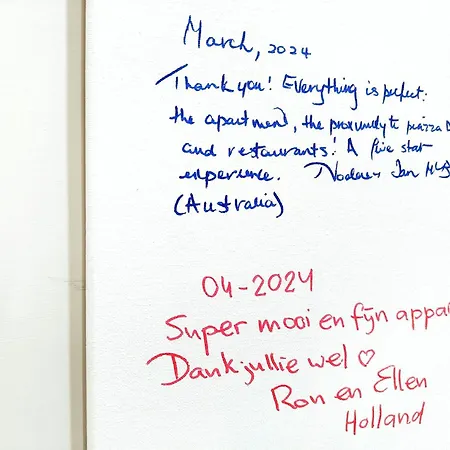 March, 2024
Thank you! Everything is perfect:
the apartment, the proximity to piazza
and restaurants! A five star
experience. Jan
(Australia)
04-2024
Super mooi en fijn appa
Dank jullie wel ♡
Ron en Ellen
Holland